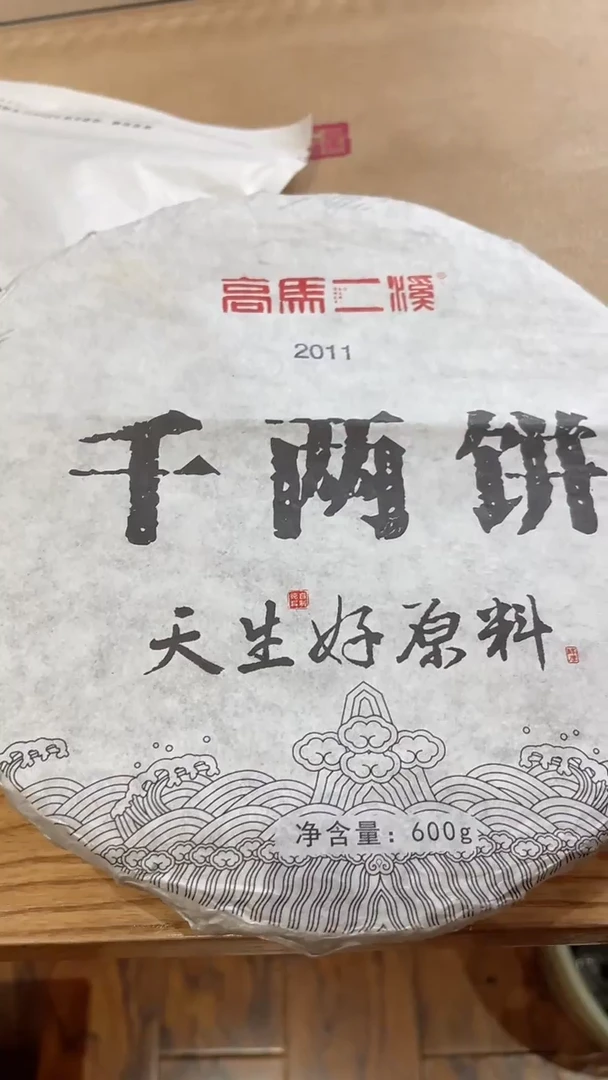 高馬二溪®
2011
千两饼
天生好原料
净含量：600g